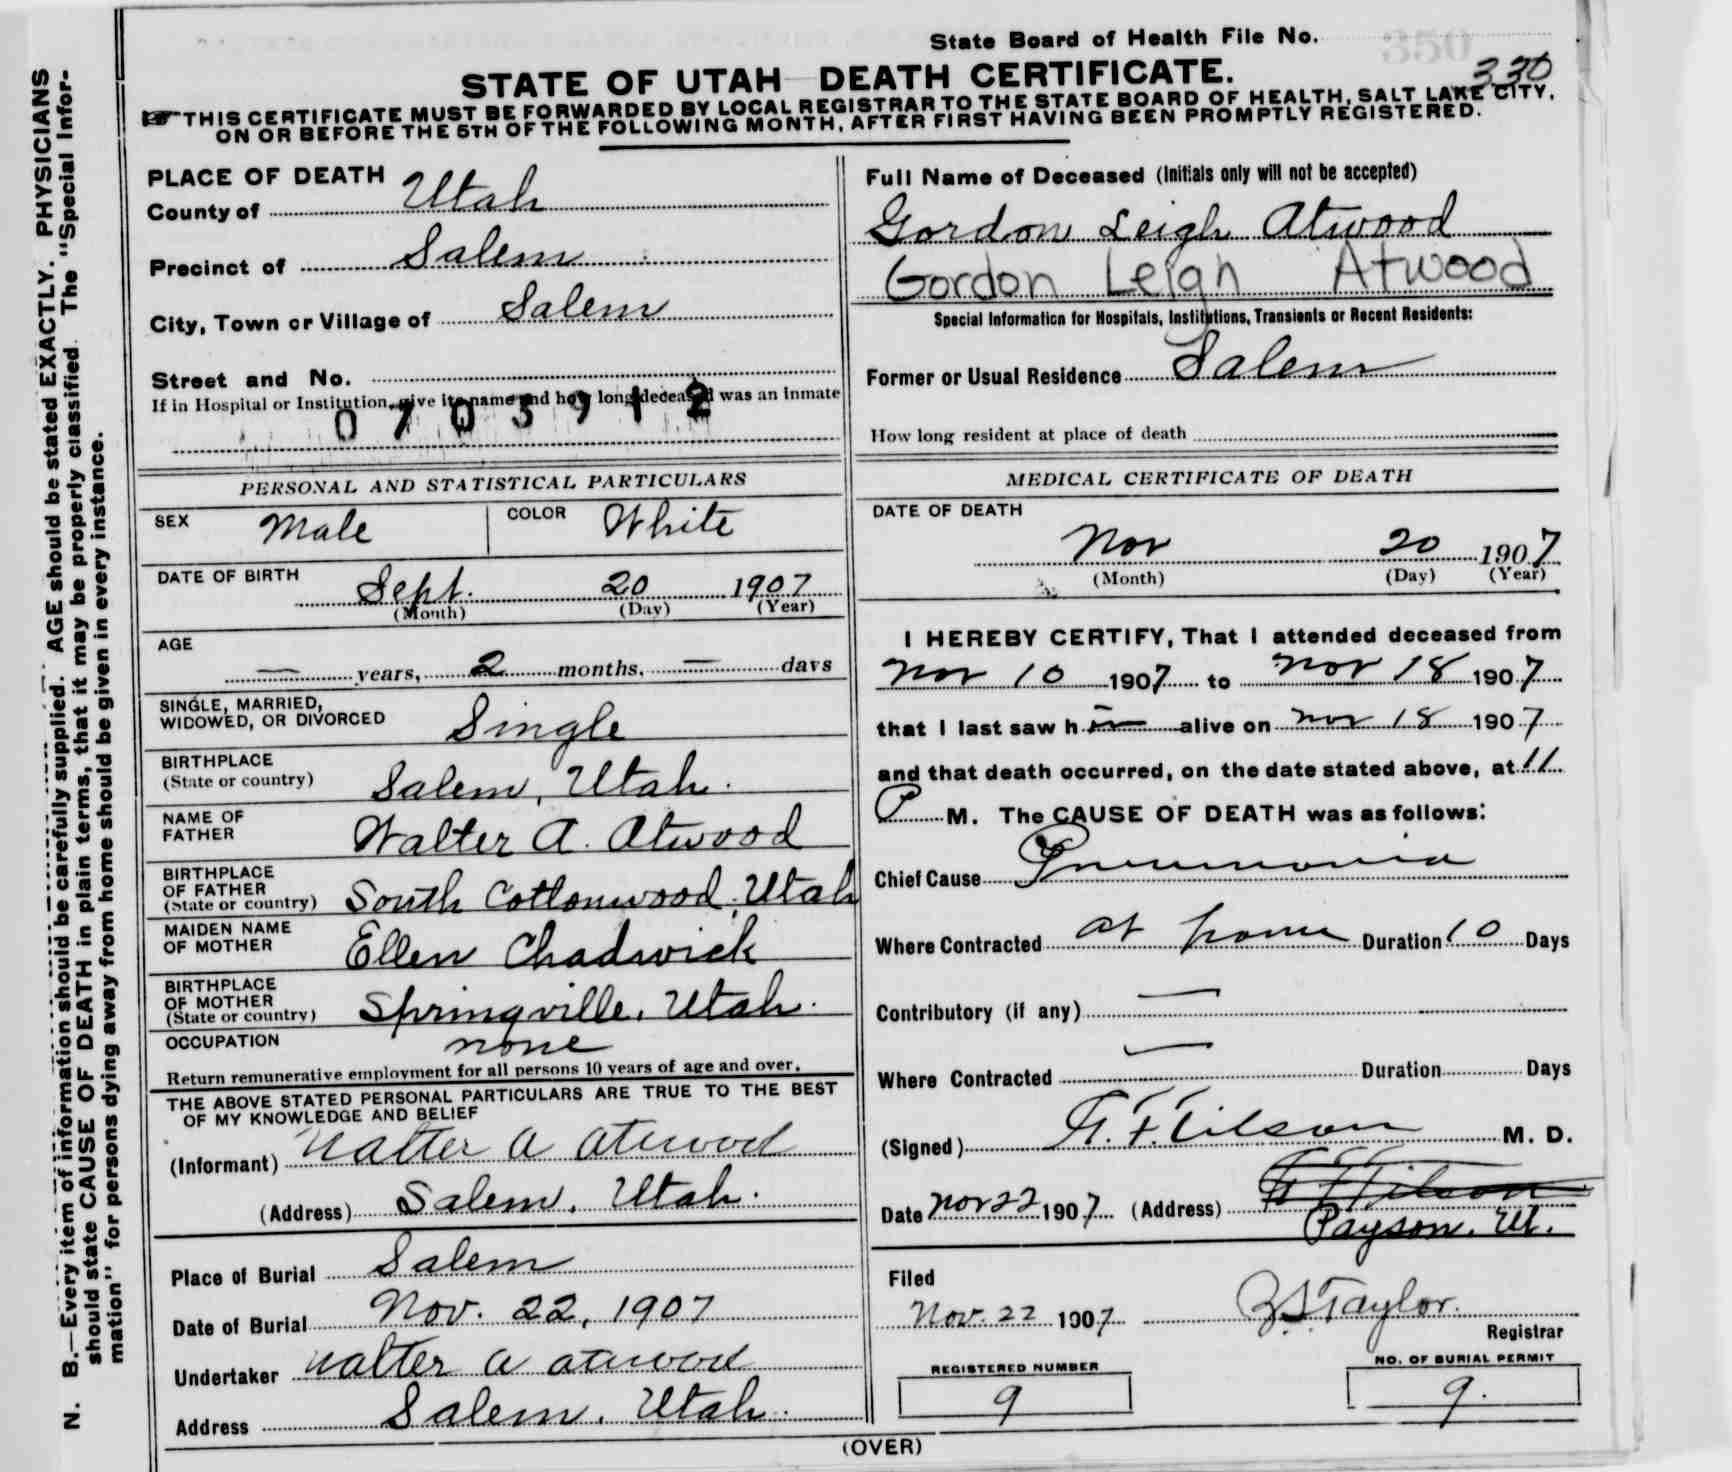 State Board of Health File No. 350
330
STATE OF UTAH DEATH CERTIFICATE.
THIS CERTIFICATE MUST BE FORWARDED BY LOCAL REGISTRAR TO THE STATE BOARD OF HEALTH, SALT LAKE CITY,
ON OR BEFORE THE 5TH OF THE FOLLOWING MONTH, AFTER FIRST HAVING BEEN PROMPTLY REGISTERED.
N. B.—Every item of information should be carefully supplied. AGE should be stated EXACTLY. PHYSICIANS
should state CAUSE OF DEATH in plain terms, that it may be properly classified. The "Special Infor-
mation" for persons dying away from home should be given in every instance.
PLACE OF DEATH
County of Utah
Precinct of Salem
City, Town or Village of Salem
Street and No.
If in Hospital or Institution, give its name and how long deceased was an inmate
0703912
PERSONAL AND STATISTICAL PARTICULARS
SEX Male COLOR White
DATE OF BIRTH Sept. 20 1907
(Month) (Day) (Year)
AGE
— years, 2 months, — days
SINGLE, MARRIED,
WIDOWED, OR DIVORCED Single
BIRTHPLACE
(State or country) Salem, Utah.
NAME OF
FATHER Walter A. Atwood
BIRTHPLACE
OF FATHER
(State or country) South Cottonwood, Utah
MAIDEN NAME
OF MOTHER Ellen Chadwick
BIRTHPLACE
OF MOTHER
(State or country) Springville, Utah.
OCCUPATION none
Return remunerative employment for all persons 10 years of age and over.
THE ABOVE STATED PERSONAL PARTICULARS ARE TRUE TO THE BEST
OF MY KNOWLEDGE AND BELIEF
(Informant) Walter A Atwood
(Address) Salem, Utah.
Place of Burial Salem
Date of Burial Nov. 22, 1907
Undertaker Walter A Atwood
Address Salem, Utah.
Full Name of Deceased (Initials only will not be accepted)
Gordon Leigh Atwood
Gordon Leigh Atwood
Special Information for Hospitals, Institutions, Transients or Recent Residents:
Former or Usual Residence Salem
How long resident at place of death
MEDICAL CERTIFICATE OF DEATH
DATE OF DEATH
Nov 20 1907
(Month) (Day) (Year)
I HEREBY CERTIFY, That I attended deceased from
Nov 10 1907 to Nov 18 1907
that I last saw h im alive on Nov 18 1907
and that death occurred, on the date stated above, at 11
P M. The CAUSE OF DEATH was as follows:
Chief Cause Pneumonia
Where Contracted at home Duration 10 Days
Contributory (if any) —
Where Contracted — Duration Days
(Signed) M. D.
Date Nov 22 1907 (Address)
Payson, Ut.
Filed
Nov. 22 1907 Taylor.
Registrar
REGISTERED NUMBER
9
NO. OF BURIAL PERMIT
9.
(OVER)